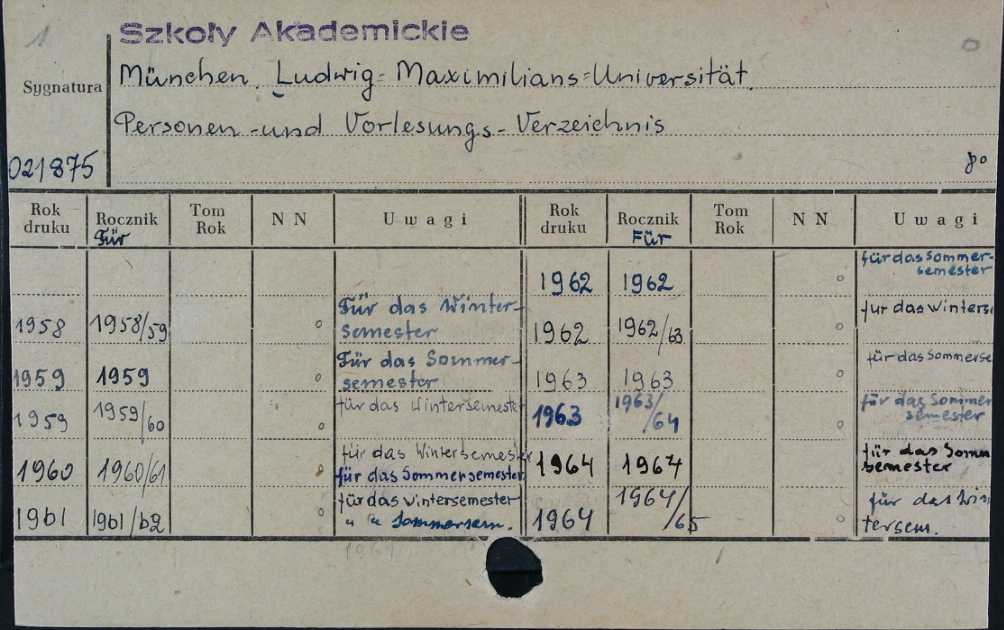 1
Szkoły Akademickie
München. Ludwig-Maximilians-Universität.
Sygnatura
Personen-und Vorlesungs-Verzeichnis
021875
po
Rok druku Rocznik Für Tom Rok N N Uwagi Rok druku Rocznik Für Tom Rok N N Uwagi
1962 1962 für das Sommer-
semester
1958 1958/59 Für das Winter-
semester
1962 1962/63 fur das Winterse
1959 1959 Für das Sommer-
semester
1963 1963 für das Sommerse
1959 1959/60 für das Wintersemester
1963 1963/64 für das Sommer
semester
1960 1960/61 für das Wintersemester
für das Sommersemester
1964 1964 für das Somm
semester
1961 1961/62 für das Wintersemester
" " Sommersem.
1964 1964/65 für das Win
tersem.
1964